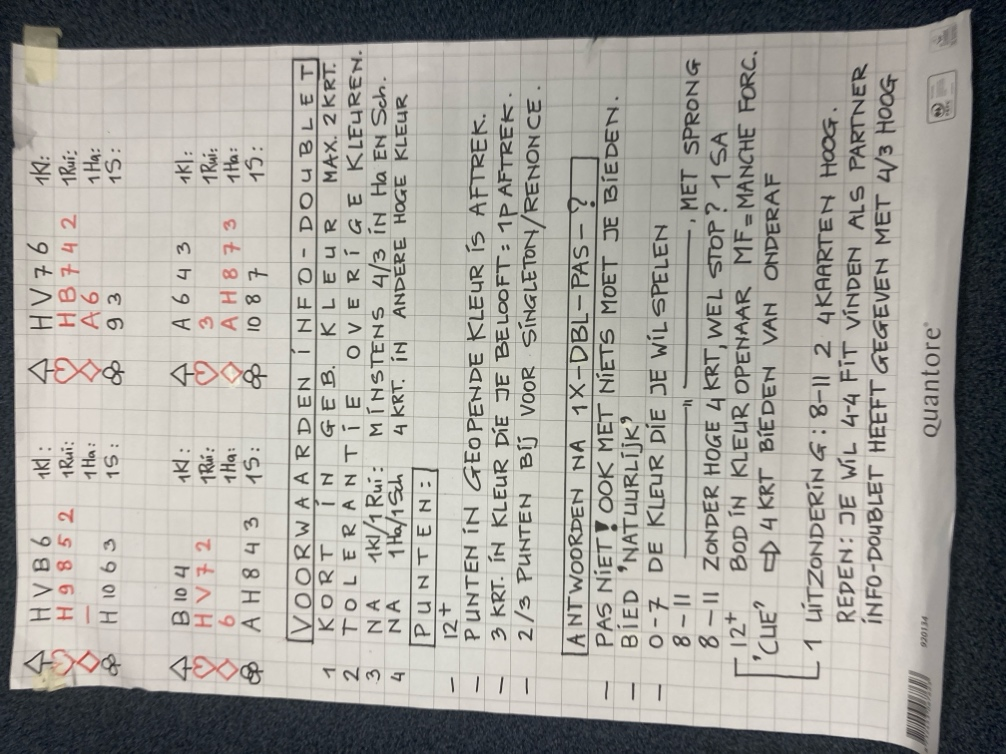 ♤ H V B 6 1Kl:
♡ H 9 8 5 2 1Rui:
♢ — 1Ha:
♧ H 10 6 3 1S:
♤ H V 7 6 1Kl:
♡ H B 7 4 2 1Rui:
♢ A 6 1Ha:
♧ 9 3 1S:
♤ B 10 4 1Kl:
♡ H V 7 2 1Rui:
♢ 6 1Ha:
♧ A H 8 4 3 1S:
♤ A 6 4 3 1Kl:
♡ 3 1Rui:
♢ A H 8 7 3 1Ha:
♧ 10 8 7 1S:
VOORWAARDEN INFO-DOUBLET
1 KORT IN GEB. KLEUR MAX. 2 KRT.
2 TOLERANTIE OVERIGE KLEUREN.
3 NA 1Kl/1Rui: MINSTENS 4/3 IN Ha EN Sch.
4 NA 1Ha/1Sch 4 KRT. IN ANDERE HOGE KLEUR
PUNTEN:
— 12+
— PUNTEN IN GEOPENDE KLEUR IS AFTREK.
— 3 KRT. IN KLEUR DIE JE BELOOFT: 1P AFTREK.
— 2/3 PUNTEN BIJ VOOR SINGLETON/RENONCE.
ANTWOORDEN NA 1X-DBL-PAS-?
— PAS NIET! OOK MET NIETS MOET JE BIEDEN.
— BIED 'NATUURLIJK'
— 0-7 DE KLEUR DIE JE WIL SPELEN
8-11 ——— " ———, MET SPRONG
8-11 ZONDER HOGE 4 KRT, WEL STOP? 1SA
12+ BOD IN KLEUR OPENAAR MF=MANCHE FORC.
'CUE' ⇨ 4 KRT BIEDEN VAN ONDERAF
1 UITZONDERING: 8-11 2 4KAARTEN HOOG.
REDEN: JE WIL 4-4 FIT VINDEN ALS PARTNER
INFO-DOUBLET HEEFT GEGEVEN MET 4/3 HOOG
920134
Quantore